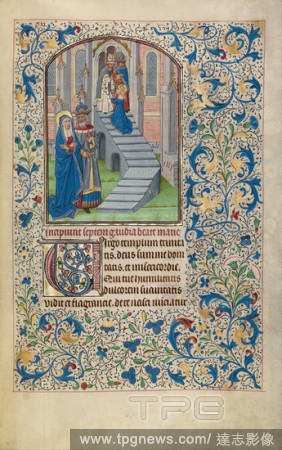 Incipiunt septem gaudia beate marie
Virgo templum trinita
tis. deus summe boni
tatis. et misericordie.
Qui tue humilitatis
dulcorem suavitatis
vidit et fragrantie. de te nasci nuciatur
TPG
www.tpgnews.com/達志影像